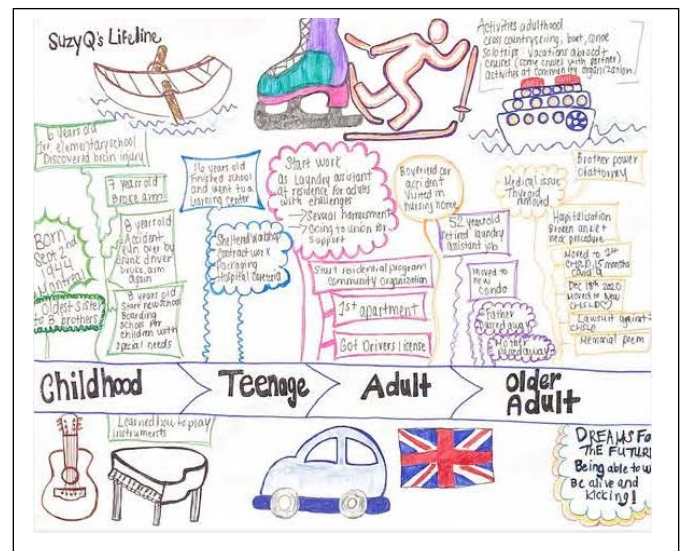 SuzyQ's Lifeline
Activities adulthood
cross country skiing, boat, canoe
solo trips: vacations abroad +
cruises (some cruises with partner)
activities at community organization.
6 years old
1st elementary school
Discovered brain injury
7 years old
Broke arm
8 year old
Accident
run over by
drunk driver
broke arm
again
Born
Sept 2nd
1944
Montreal
Oldest sister
to 3 brothers
8 years old
Start new school
Boarding
School for
children with
special needs
16 years old
Finished school
and went to a
Learning center
Sheltered workshop
contract work
Packaging
Hospital cafeteria
Start work
as Laundry assistant
at residence for adults
with challenges
→ Sexual harassment
→ Going to union for
support
Start residential program
community organization
1st apartment
Got Drivers license
Boyfriend car
accident
visited in
nursing home
52 year old
retired laundry
assistant job
moved to
new
condo
Father
passed away
Mother
passed away
Medical issue
Thyroid
removed
Brother power
of attorney
Hospitalisation
Broken ankle +
procedure
Moved to 1st
CHSLD 15 months
covid 19
Dec 18th 2020
Moved to New
CHSLD ♡
Lawsuit against
CHSLD
Memorial poem
Childhood
Teenage
Adult
Older
Adult
Learned how to play
instruments
DREAMS FO
THE FUTURE
Being able to w
Be alive and
kicking!